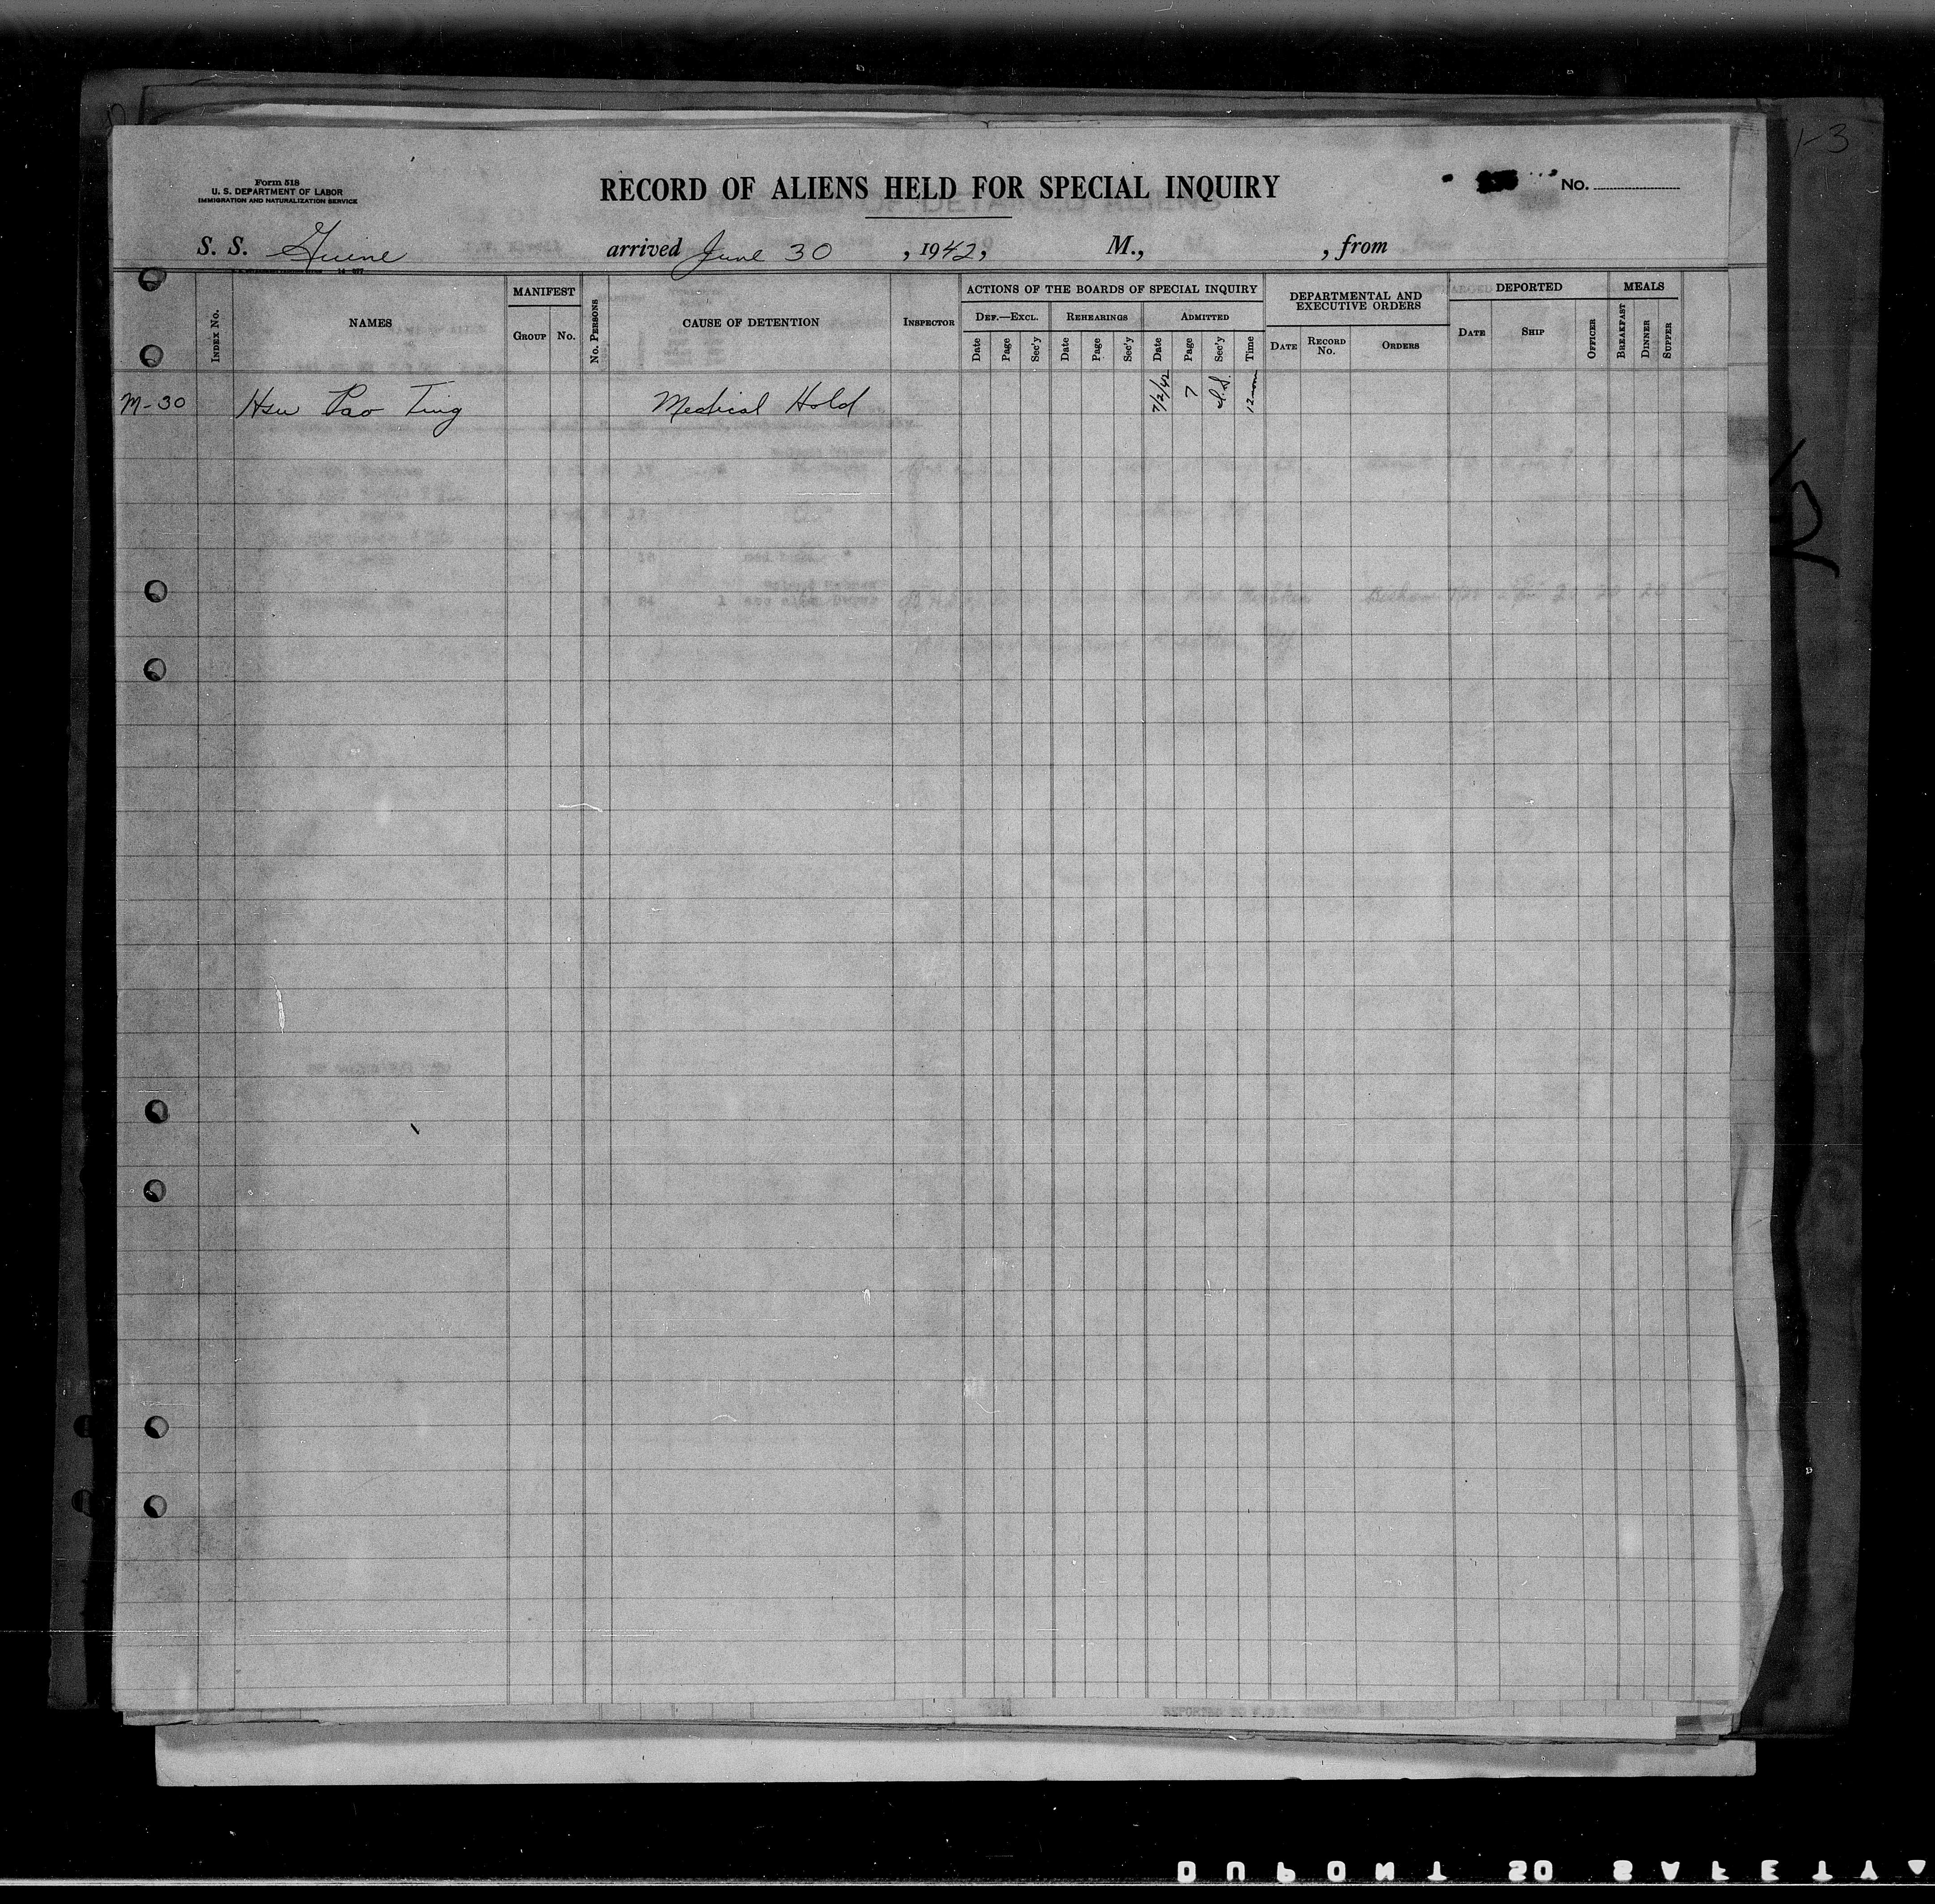 1-3
Form 518
U. S. DEPARTMENT OF LABOR
IMMIGRATION AND NATURALIZATION SERVICE
RECORD OF ALIENS HELD FOR SPECIAL INQUIRY
No.
S. S. Guine arrived June 30, 1942, M., , from
Index No.
NAMES
MANIFEST
GROUP No.
No. PERSONS
CAUSE OF DETENTION
INSPECTOR
ACTIONS OF THE BOARDS OF SPECIAL INQUIRY
DEF.—EXCL. REHEARINGS ADMITTED
Date Page Sec'y Date Page Sec'y Date Page Sec'y Time
DEPARTMENTAL AND
EXECUTIVE ORDERS
DATE RECORD No. ORDERS
DEPORTED
DATE SHIP OFFICER
MEALS
BREAKFAST DINNER SUPPER
M-30 Hsu Pao Ting Medical Hold 7/2/42 7 S.S. 12 noon
DUPONT SO SAFETY